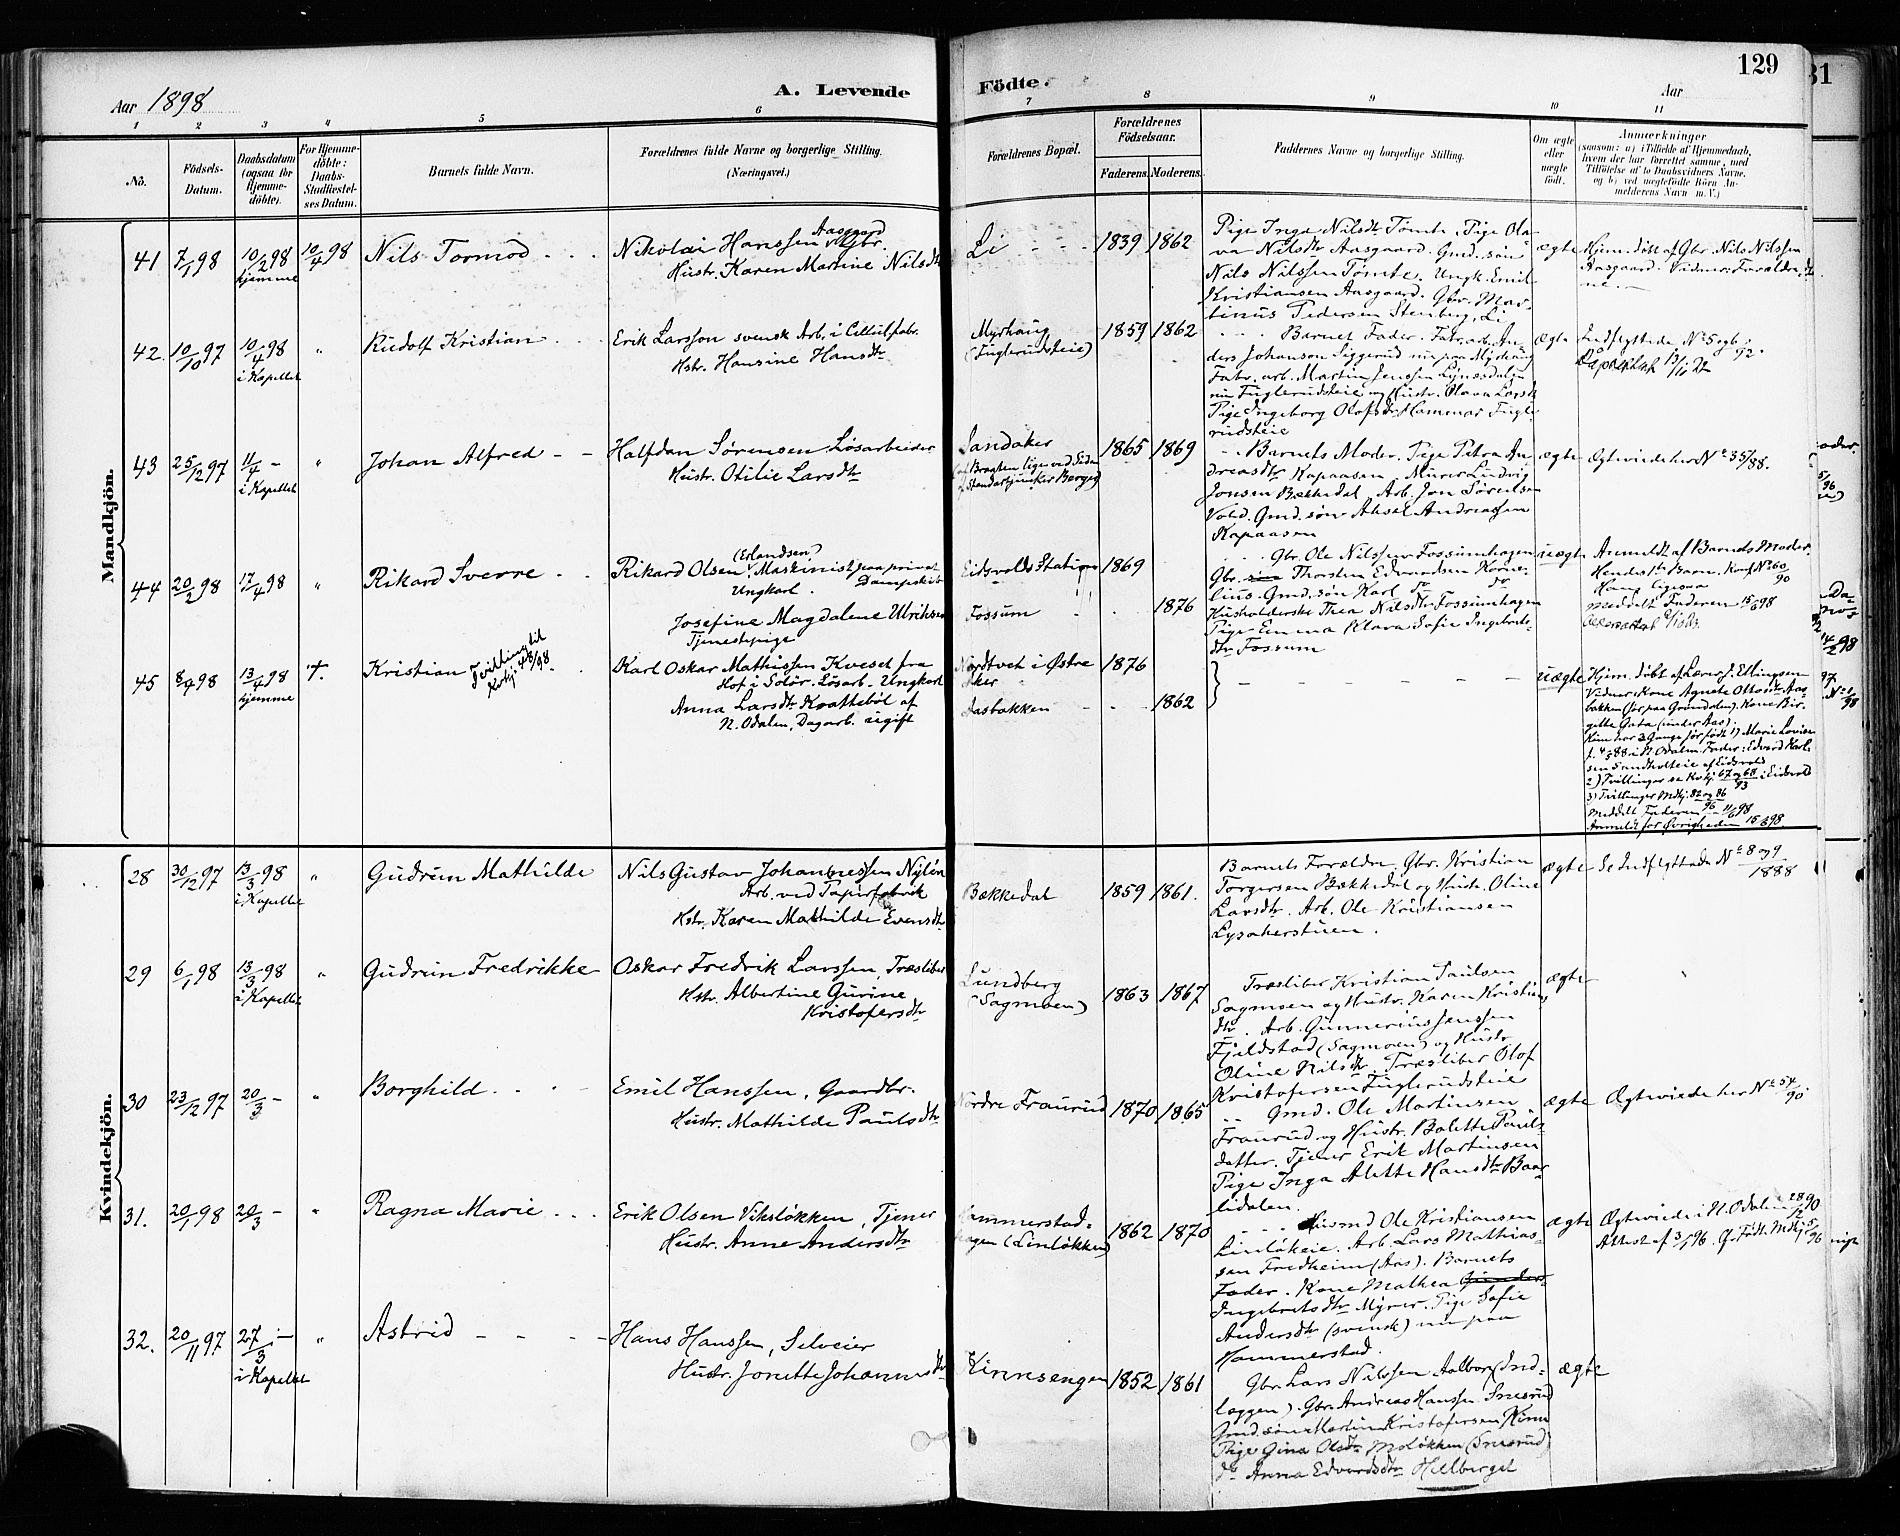 129
31
Aar 1898
A. Levende
Födte.
Aar
1 2 3 4 5 6 7 8 9 10 11
No.
Födsels-Datum.
Daabsdatum (ogsaa for Hjemmedöbte).
For Hjemmedöbte: Daabs-Stadfæstelses Datum.
Barnets fulde Navn.
Forældrenes fulde Navne og borgerlige Stilling. (Næringsvei.)
Forældrenes Bopæl.
Forældrenes Födselsaar.
Faderens. Moderens.
Faddernes Navne og borgerlige Stilling.
Om ægte eller uægte födt.
Anmærkninger (saasom: a) i Tilfælde af Hjemmedaab, hvem der har forrettet samme, med Tilföielse af to Daabsvidners Navne, og b) ved uægtefödte Börn Anmelderens Navn m. V.)
Mandkjön.
41 7/1 98 10/2 98 hjemme 10/4 98 Nils Tormod
Nikolai Hanssen Aasgaard Gbr.
Hustr. Karen Martine Nilsdtr
Li 1839 1862
Pige Inga Nilsdtr Tömte, Pige Ola-
va Nilsdtr Aasgaard. Gmd. sön
Nils Nilssen Tömte. Ungk. Emil
Kristiansen Aasgaard. Gbr. Mar-
tinus Pedersen Stenberg, Li
ægte
Hjem. döbt af Gbr. Nils Nilssen
Aasgaard. Vidner: Forældre-
ne.
42. 10/10 97 10/4 98 i Kapellet " Rudolf Kristian
Erik Larsson svensk Arb. i Cellul.fabr.
Hstr. Hansine Hansdtr
Myrhaug
(Fuglerudsteie)
1859 1862
Barnets Fader. Fabr.arb. An-
ders Johanson Siggerud nu paa Myrhaug
Fabr. arb. Martin Jenssen Lynesdalen
nu Fuglerudsteie og Hustr. Olava Larsdtr
Pige Ingeborg Olofsdtr Hammar Fugle-
rudsteie
ægte
Indflyttede No 5 og 6/92.
43 25/12 97 11/4 - i Kapellet " Johan Alfred
Halfdan Sörensen Lösarbeider
Hustr. Otilie Larsdtr
Sandaker
1865 1869
Barnets Moder. Pige Petra An-
dreasdtr Kapaasen Murer Ludvig
Jonsen Bækkedal, Arb. Jon Sörensen
Vold. Gmd. sön Aksel Andreassen
Kapaasen
ægte Ægteviede her No 35/88.
44 20/2 98 17/4 98 " Rikard Sverre
(Erlandsen)
Rikard Olsen, Maskinist paa privat
Ungkarl. Dampskib
Josefine Magdalene Ulriksen
Tjenestepige
Eidsvolds Station 1869
Fossum 1876
Gbr. Ole Nilssen Fossumhagen
Gbr. Thorsten Edvardsen Korne-
lius. Gmd. sön Karl do do
Husholderske Thea Nilsdtr Fossumhagen
Pige Emma Klara Sofie Ingebrets-
dtr Fossum
uægte
Anmeldt af Barnets Moder.
Hendes 1ste Barn. Konf. No 60/90
Meddelt Faderen 15/6 98
45 8/4 98 13/4 98 hjemme +. Kristian Tvilling til Kvkj. 43/98.
Karl Oskar Mathissen Kveset fra
Hof i Solör. Lösarb. Ungkarl
Anna Larsdtr Kvatteböl af
N. Odalen, Dagarb. ugift
Nordtvet i Östre
Aker
1876
Aasbakken 1862
uægte
Hjem. döbt af Lærer J. Ellingsen
Vidner: Kone Agnete Ottosdtr Aas-
bakken (för paa Gröndalen). Kone Bir-
gitte Gata (under Aas).
Hun har 3 Gange för födt 1) Marie Lovise
f. 4/5 88 i N. Odalen. Fader: Edvard Karl-
sen Sandholteie af Eidsvold
2) Tvillinger se Kvkj. 67 og 68/93 i Eidsvold
3) Tvillinger Mdkj. 82 og 86/96
Meddelt Faderen 11/6 98
Anmeldt for Övrigheden 15/6 98.
Kvindekjön.
28 30/12 97 13/3 98 i Kapellet " Gudrun Mathilde
Nils Gustav Johannessen Nylén
Arb. ved Papirfabrik
Hstr. Karen Mathilde Evensdtr
Bækkedal 1859 1861.
Barnets Forældre, Gbr. Kristian
Torgersen Bækkedal og Hustr. Oline
Larsdtr. Arb. Ole Kristiansen
Lysakerstuen.
ægte Se Indflyttede No 8 og 9/1888
29 6/1 98 13/3 98 i Kapellet " Gudrun Fredrikke
Oskar Fredrik Larssen, Træsliber
Hstr. Albertine Gurine
Kristofersdtr
Lundberg
(Sagmoen)
1863 1867
Træsliber Kristian Paulsen
Sagmoen og Hustr. Karen Kristians-
dtr. Arb. Gunnerius Jenssen
Fjeldstad (Sagmoen) og Hustr.
Oline Nilsdtr. Træsliber Olof
Kristofersen Fuglerudsteie
ægte
30 23/12 97 20/3 - " Borghild
Emil Hanssen, Gaardbr.
Hustr. Mathilde Paulsdtr
Nordre Fraurud 1870 1865
Gmd. Ole Martinsen
Fraurud og Hustr. Bolette Pauls-
datter. Tjener Erik Martinsen
Pige Inga Alette Hansdtr Baar-
lidalen.
ægte Ægteviede her No 54/90.
31. 20/1 98 20/3 - " Ragna Marie
Erik Olsen Viksløkken, Tjener
Hustr. Anne Andersdtr
Hammerstad-
hagen (Linløkken)
1862 1870
Husmd Ole Kristiansen
Linløkeie. Arb. Lars Mathias-
sen Fredheim (Aas). Barnets
Fader. Kone Mathea
Ingebretsdtr Myrer. Pige Sofie
Andersdtr (svensk) nu paa
Hammerstad.
ægte
Ægteviede i N. Odalen 28/12 90
Attest af 3/1 96. Cf. Födte Mdkj 5/96
32. 20/11 97 27/3 - i Kapellet " Astrid
Hans Hanssen, Selveier
Hustr. Jonette Johannesdtr
Kinnsengen 1852 1861
Gbr. Lars Nilssen Aalborg (Ind-
læggen). Gbr. Andreas Hanssen Snesrud
Gmd. sön Martin Kristofersen Kinn
Pige Gina Olsdtr Moløkken (Snesrud)
do Anna Edvardsdtr Helberget
ægte